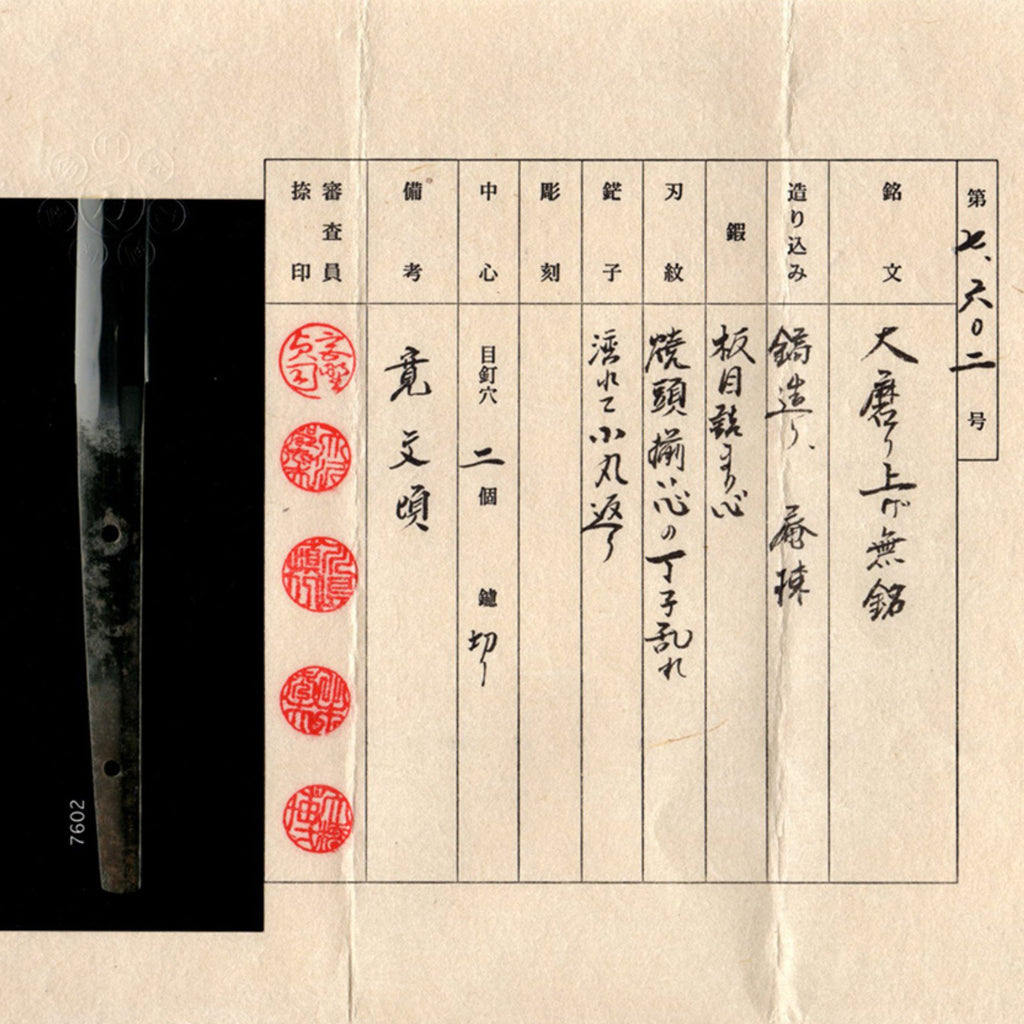 第七、六〇二号
銘文
大磨り上げ無銘
造り込み
鎬造り、庵棟
鍜
板目詰まり心
刃紋
焼頭揃い心の丁子乱れ
鋩子
湾れて小丸返り
彫刻
中心
目釘穴 二個 鑢 切り
備考
寛文頃
審査員
捺印
7602